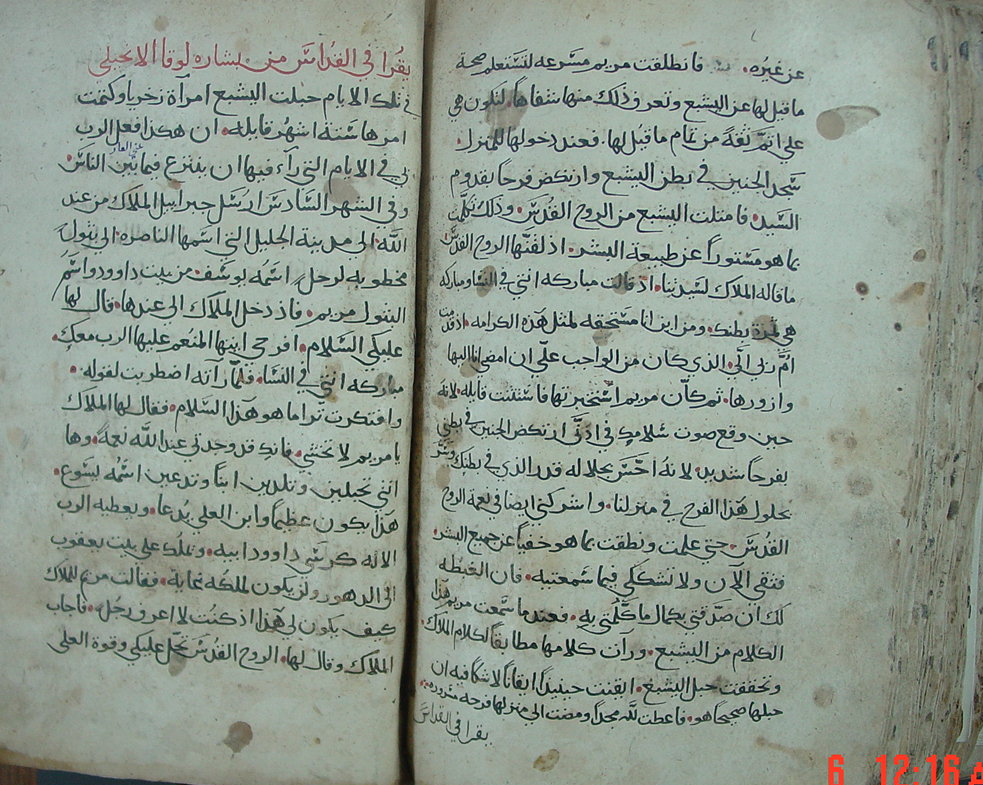 عن غيره. فانطلقت مريم مسرعه لتستعلم صحة
ما قيل لها عن اليشبع وتعرف ذلك منها شفاها. لتكون هي
على اتم ثقة من تمام ما قيل لها. فعند دخولها للمنزل.
سجد الجنين في بطن اليشبع وارتكض فرحاً بقدوم
السيد. فامتلت اليشبع من الروح القدس. وذلك تكلمت
بما هو مستوراً عن طبيعة البشر. اذ لقنها الروح القدس
ما قاله الملاك لسيدتنا. اذ قالت مباركه انتي في النسا ومباركه
هي ثمرة بطنك. ومن اين انا مستحقه لمثل هذه الكرامه.
ام ربي الي. الذي كان من الواجب علي ان امضي انا اليها
وازورها. ثم كان مريم استخبرتها فاستثنت قايله. لانه
حين وقع صوت سلامك في اذني ارتكض الجنين في بطني
بفرحاً شديد. لانه احسن بجلاله قدر الذي في بطنك
بحلول هذا الفرح في منزلنا. واشركني ايضا في نعمة الروح
القدس. حتي علمت ونطقت بما هو خفياً عن جميع البشر.
فثقي الان ولا تشككي فيما سمعتيه. فان الغبطه
لك ان صدقتي بكمال ما كلمتي به. فعند ما سمعت مريم هذا
الكلام من اليشبع. ورات كلامها مطابقاً لكلام الملاك.
وتحققت حبل اليشبع. ايقنت حينيذاً ايقاناً لا شكا فيه ان
حبلها صحيحاً هو. فاعطت لله مجداً ومضت الي منزلها فرحه مسروره.
يقرا في القداس
يقرا في القداس من بشاره لوقا الانجيلي
في تلك الايام حبلت اليشبع امرآة زخريا وكتمت
امرها ستة اشهر قايله. ان هكذا فعل الرب
لي في الايام التي رآء فيها ان ينتزع عني العار فيما بين الناس.
وفي الشهر السادس ارسل جبراييل الملاك من عند
الله. الي مدينة الجليل التي اسمها الناصرة. الي بتول
مخطوبه لرجل اسمه يوسف من بيت داوود واسم
البتول مريم. فاذ دخل الملاك الي عندها. قال لها
عليكي السلام. افرحي ايتها المنعم عليها الرب معك.
مباركه انتي في النسا. فلما رآته اضطربت لقوله.
وافتكرت تراما هو هذا السلام. فقال لها الملاك
يا مريم لا تخشي. فانك قد وجدتي عند الله نعمة. وها
انتي تحبلين وتلدين ابناً وتدعين اسمه يسوع.
هذا يكون عظيماً وابن العلي يدعا. ويعطيه الرب
الاله كرسي داوود ابيه. ويملك علي بيت يعقوب
الي الدهور ولن يكون لملكه نهاية. فقالت مريم للملاك
كيف يكون لي هذا اذ كنت لا اعرف رجل. فاجاب
الملاك وقال لها. الروح القدس تحل عليكي وقوة العلي
6 12:16 A